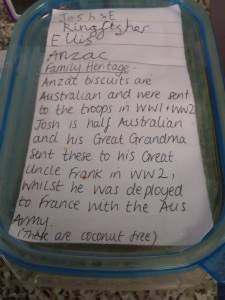 Josh S E
Kingfisher
Ellis
Anzac
Family Heritage.
Anzac biscuits are
Australian and were sent
to the troops in WW1 + WW2
Josh is half Australian
and his Great Grandma
sent these to his Great
Uncle Frank in WW2,
whilst he was deployed
to France with the Aus
Army.
(These are coconut free)